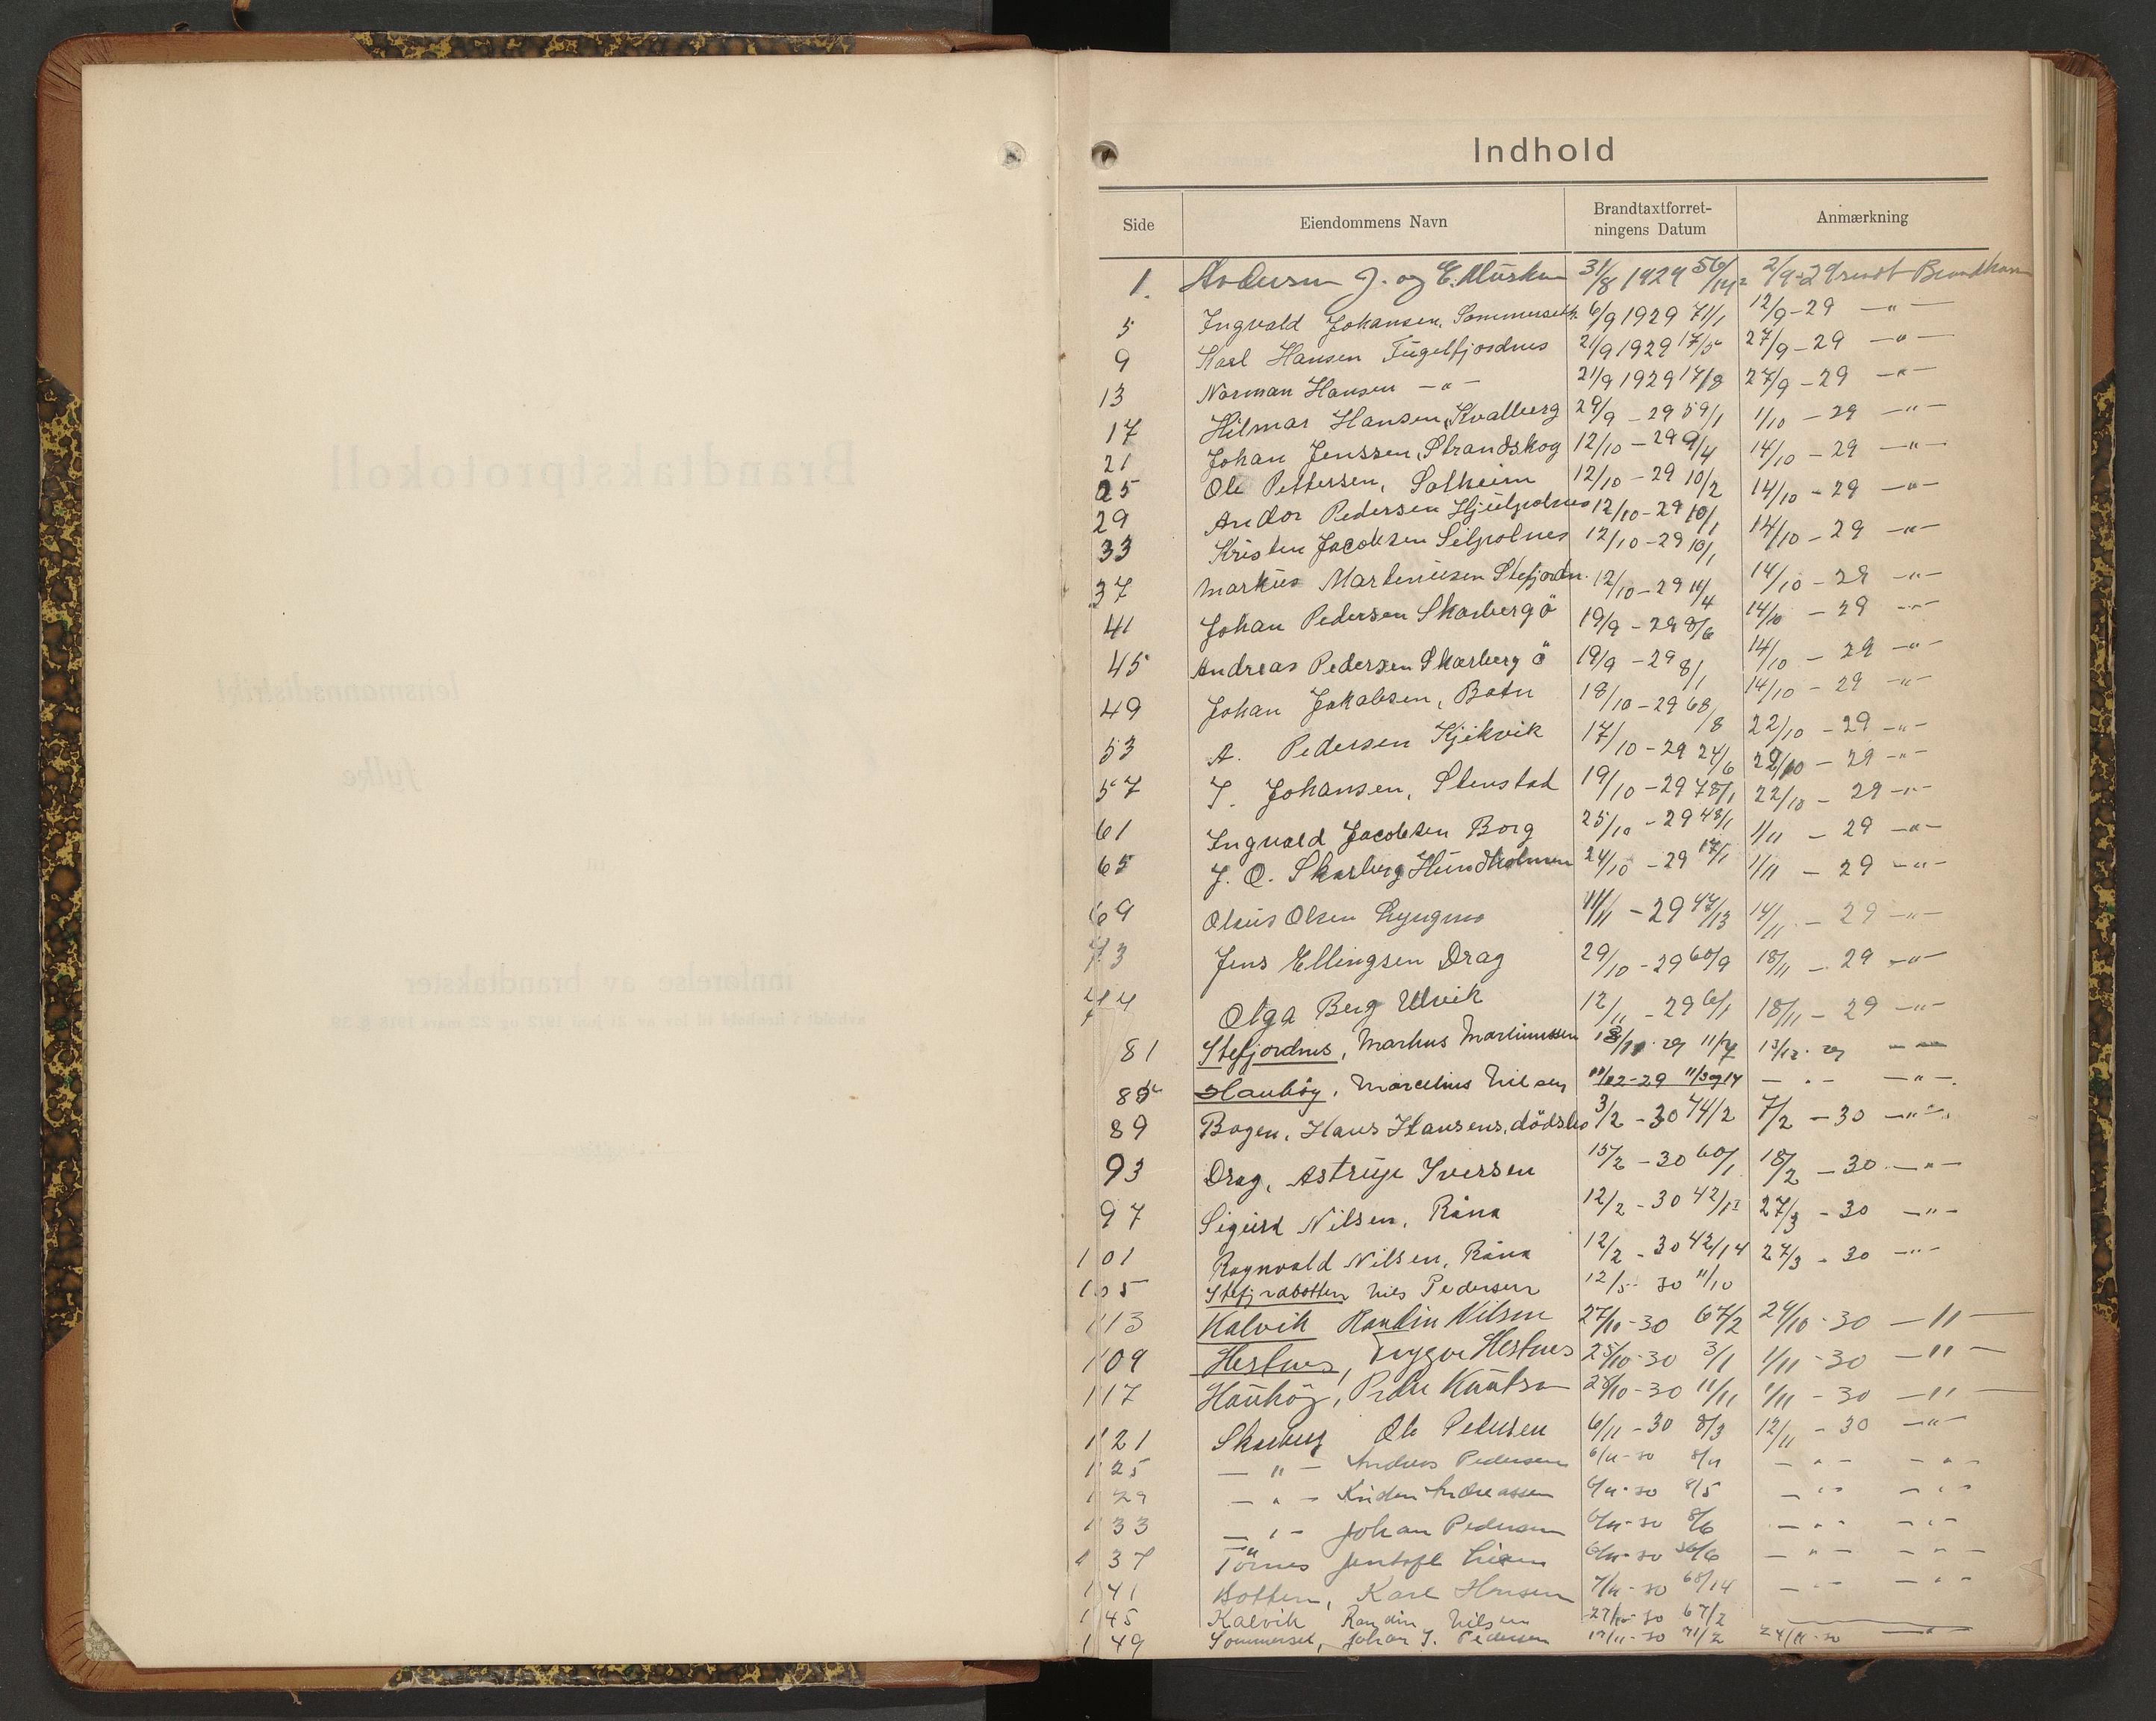 Indhold
Side Eiendommens Navn Brandtaxtforret-ningens Datum Anmærkning
1. Andersen J. og E. Musken 31/8 1929 56/14 2/9-29 sendt Brandkassen
5 Ingvald Johansen, Sommerseth. 6/9 1929 71/1 12/9-29 -"-
9 Karl Hansen Fugelfjordnes 21/9 1929 17/5 27/9-29 -"-
13 Norman Hansen -"- 21/9 1929 17/8 27/9-29 -"-
17 Hilmar Hansen, Kvalberg 29/9-29 59/1 1/10-29 -"-
21 Johan Jenssen, Strandskog 12/10-29 9/4 14/10-29 -"-
25 Ole Pettersen, Solheim 12/10-29 10/2 14/10-29 -"-
29 Andor Pedersen Hjulpolnes 12/10-29 10/1 14/10-29 -"-
33 Kristen Jacobsen Silpolnes 12/10-29 10/1
37 Markus Martinusen Stefjordn. 12/10-29 11/4 14/10-29 -"-
41 Johan Pedersen Skarbergö 19/9-29 8/6 14/10-29 -"-
45 Andreas Pedersen Skarbergö 19/9-29 8/1 14/10-29 -"-
49 Johan Jakobsen, Botn 18/10-29 68/8 14/10-29 -"-
53 A. Pedersen Kjikvik 17/10-29 24/6 22/10-29 -"-
57 I. Johansen, Stenstad 19/10-29 78/1 22/10-29 -"-
22/10-29 -"-
61 Ingvald Jacobsen Borg 25/10-29 48/1 1/11-29 -"-
65 J. O. Skarberg Hundholmen 24/10-29 17/1 1/11-29 -"-
69 Olaus Olsen Lyngmo 11/11-29 47/13 14/11-29 -"-
73 Jens Ellingsen Drag 29/10-29 60/9 18/11-29 -"-
Olga Berg Ulvik 12/11-29 6/1 18/11-29 -"-
81 Stefjordnes, Markus Martinussen 11/7 13/12-29 -"-
85 Haukøy, Marcelius Nilsen 11/12-29 11/3 og 14 -"- -"-
89 Bogen, Hans Hansens, dödsbo 3/2-30 74/2 7/2-30 -"-
93 Drag, Astrup Iversen 15/2-30 60/1 18/2-30 -"-
97 Sigurd Nilsen, Råna 12/2-30 42/12 27/3-30 -"-
101 Ragnvald Nilsen, Råna 12/2-30 42/14 27/3-30 -"-
105 Stefjordbotten Nils Pedersen 12/5-30 11/10
113 Kalvik Randin Nilsen 27/10-30 67/2 29/10-30 -"-
109 Hestnes, Trygve Hestnes 25/10-30 3/1 1/11-30 -"-
117 Haukøy, Peder Knutsen 28/10-30 11/11 1/11-30 -"-
121 Skarberg Ole Pedersen 6/11-30 8/3 12/11-30 -"-
125 -"- Andreas Pedersen 6/11-30 8/4 -"- -"-
129 -"- Kristen Andreassen 6/11-30 8/5 -"- -"-
133 -"- Johan Pedersen 6/11-30 8/6 -"- -"-
137 Törnes Jentoft 6/11-30 56/6 -"- -"-
141 Botten, Karl Hansen 7/11-30 68/14 -"- -"-
145 Kalvik Randin Nilsen 27/10-30 67/2
149 Sommerset, Johan J. Pedersen 17/11-30 71/2 24/11-30 -"-